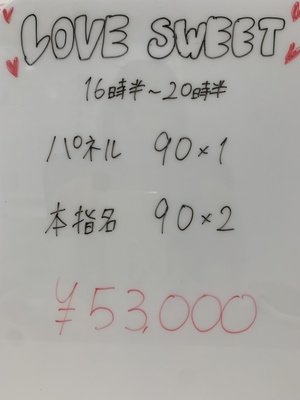 LOVE SWEET
16時半~20時半
パネル 90×1
本指名 90×2
¥53,000